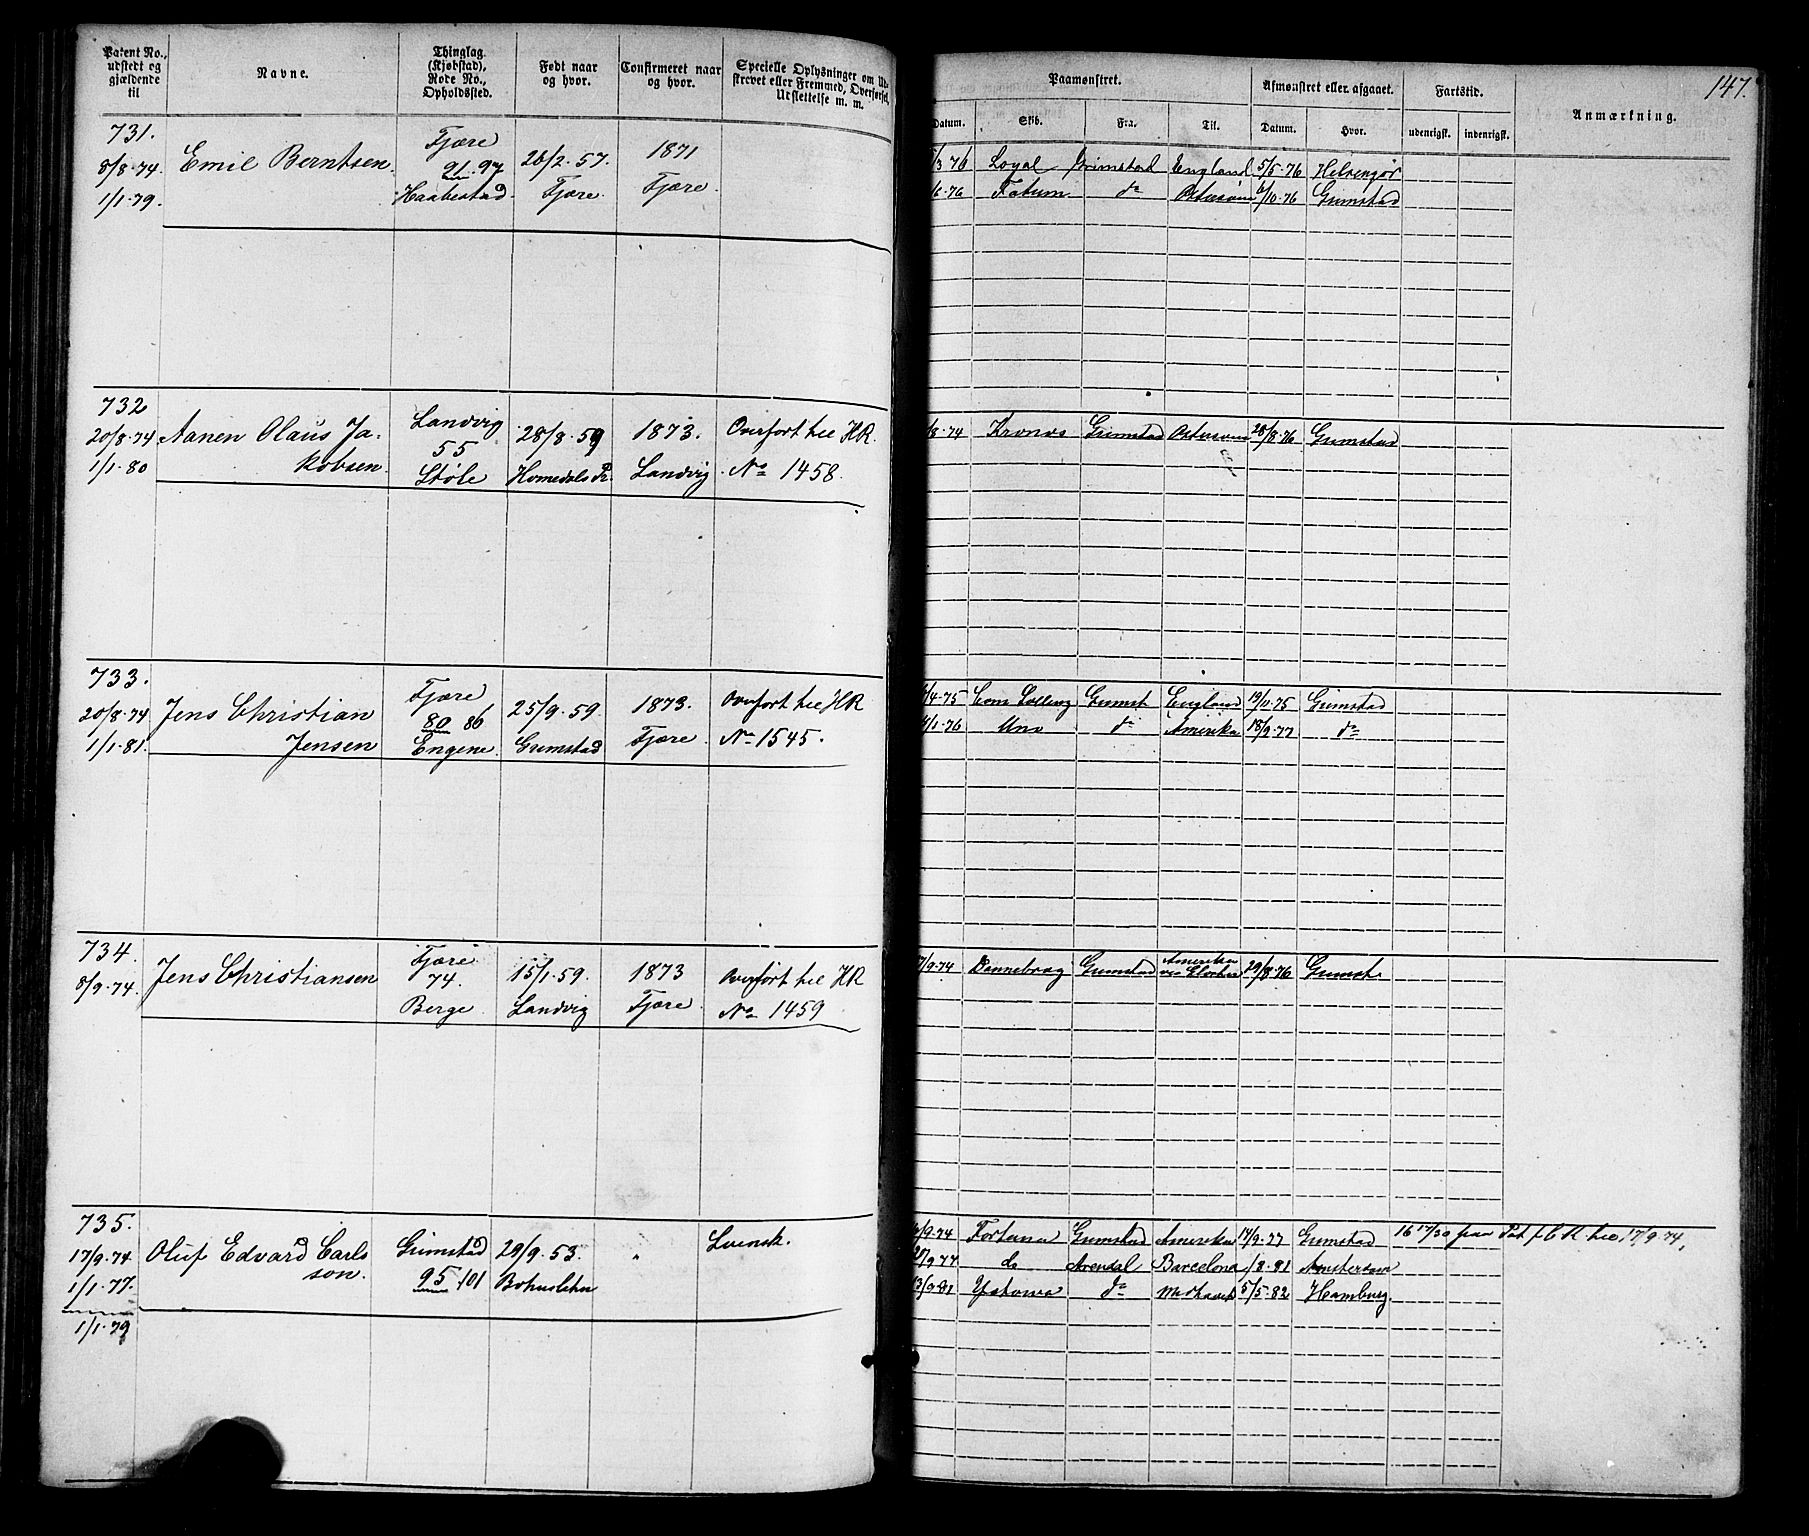 Patent No., udstedt og gjældende til
Navne.
Thinglag (Kjøbstad), Rode No., Opholdssted.
Født naar og hvor.
Confirmeret naar og hvor.
Specielle Oplysninger om Ud-
skrevet eller Fremmed, Overførsel,
Udslettelse m. m.
Paamønstret.
Afmønstret eller afgaaet.
Fartstid.
Anmærkning.
147.
Datum.
Skib.
Fra.
Til.
Datum.
Hvor.
udenrigsk.
indenrigsk.
731.
8/8-74.
1/1-79.
Emil Berntsen.
Fjære
91. 97
Haabestad.
26/2-57.
Fjære.
1871
Fjære.
/3 76 Loyal Grimstad England 5/5-76 Helsingør
/6-76 Fatum do Østersøen 6/10-76 Grimstad
732
20/8-74
1/1-80
Aanen Olaus Ja-
kobsen
Landvig
55
Støle
28/8-59
Homedals P.
1873.
Landvig
Overført til HR.
No 1458.
/8-74 Kronos Grimstad Østersøen 28/8-76 Grimstad
733.
20/8-74
1/1-81.
Jens Christian
Jensen
Fjære
80 86
Engene
25/9-59.
Grimstad
1873.
Fjære.
Overført til HR
No 1545.
/4-75 Grimst England 19/10-75 Grimstad
/1-76 Uno do Amerika 18/9-77 do
734.
8/9-74.
Jens Christiansen
Fjære
74.
Berge
15/1-59.
Landvig
1873
Fjære
Overført til HR
No 1459
7/9-74 Dannebrog Grimstad Amerika 29/8-76 Grimst.
735.
17/9-74
1/1-77.
1/1-79
Oluf Edvard Carls
son.
Grimstad
95. 101
29/9-53.
Bohuslehn
"
Svensk.
/9-74 Fortuna Grimstad Amerika 14/9-77 Grimstad 16 17/30 paa Pat f. C. R. til 17/9-74.
20/9 77 do Arendal Barcelona /8-81 Amsterdam
do 5/5-82 Hamburg.